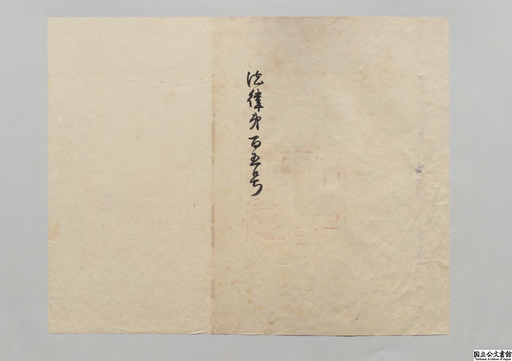 法律第百五号
国立公文書館
National Archives of Japan